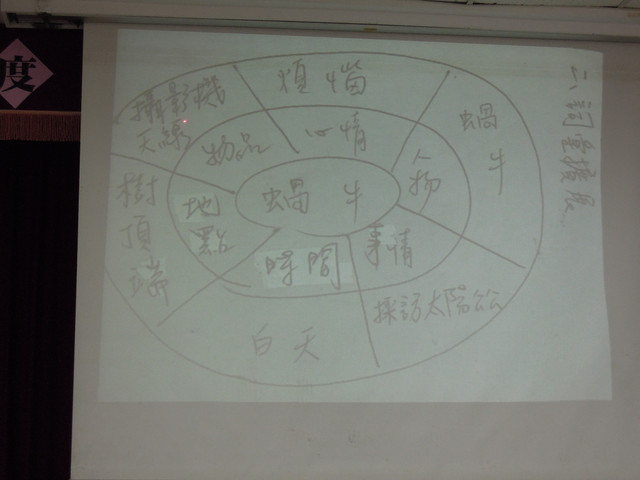 度
二、詞彙擴展
煩惱
攝影機
天線
心情
物品
蝸牛
人物
蝸牛
地點
樹頂端
時間
事情
採訪太陽公公
白天